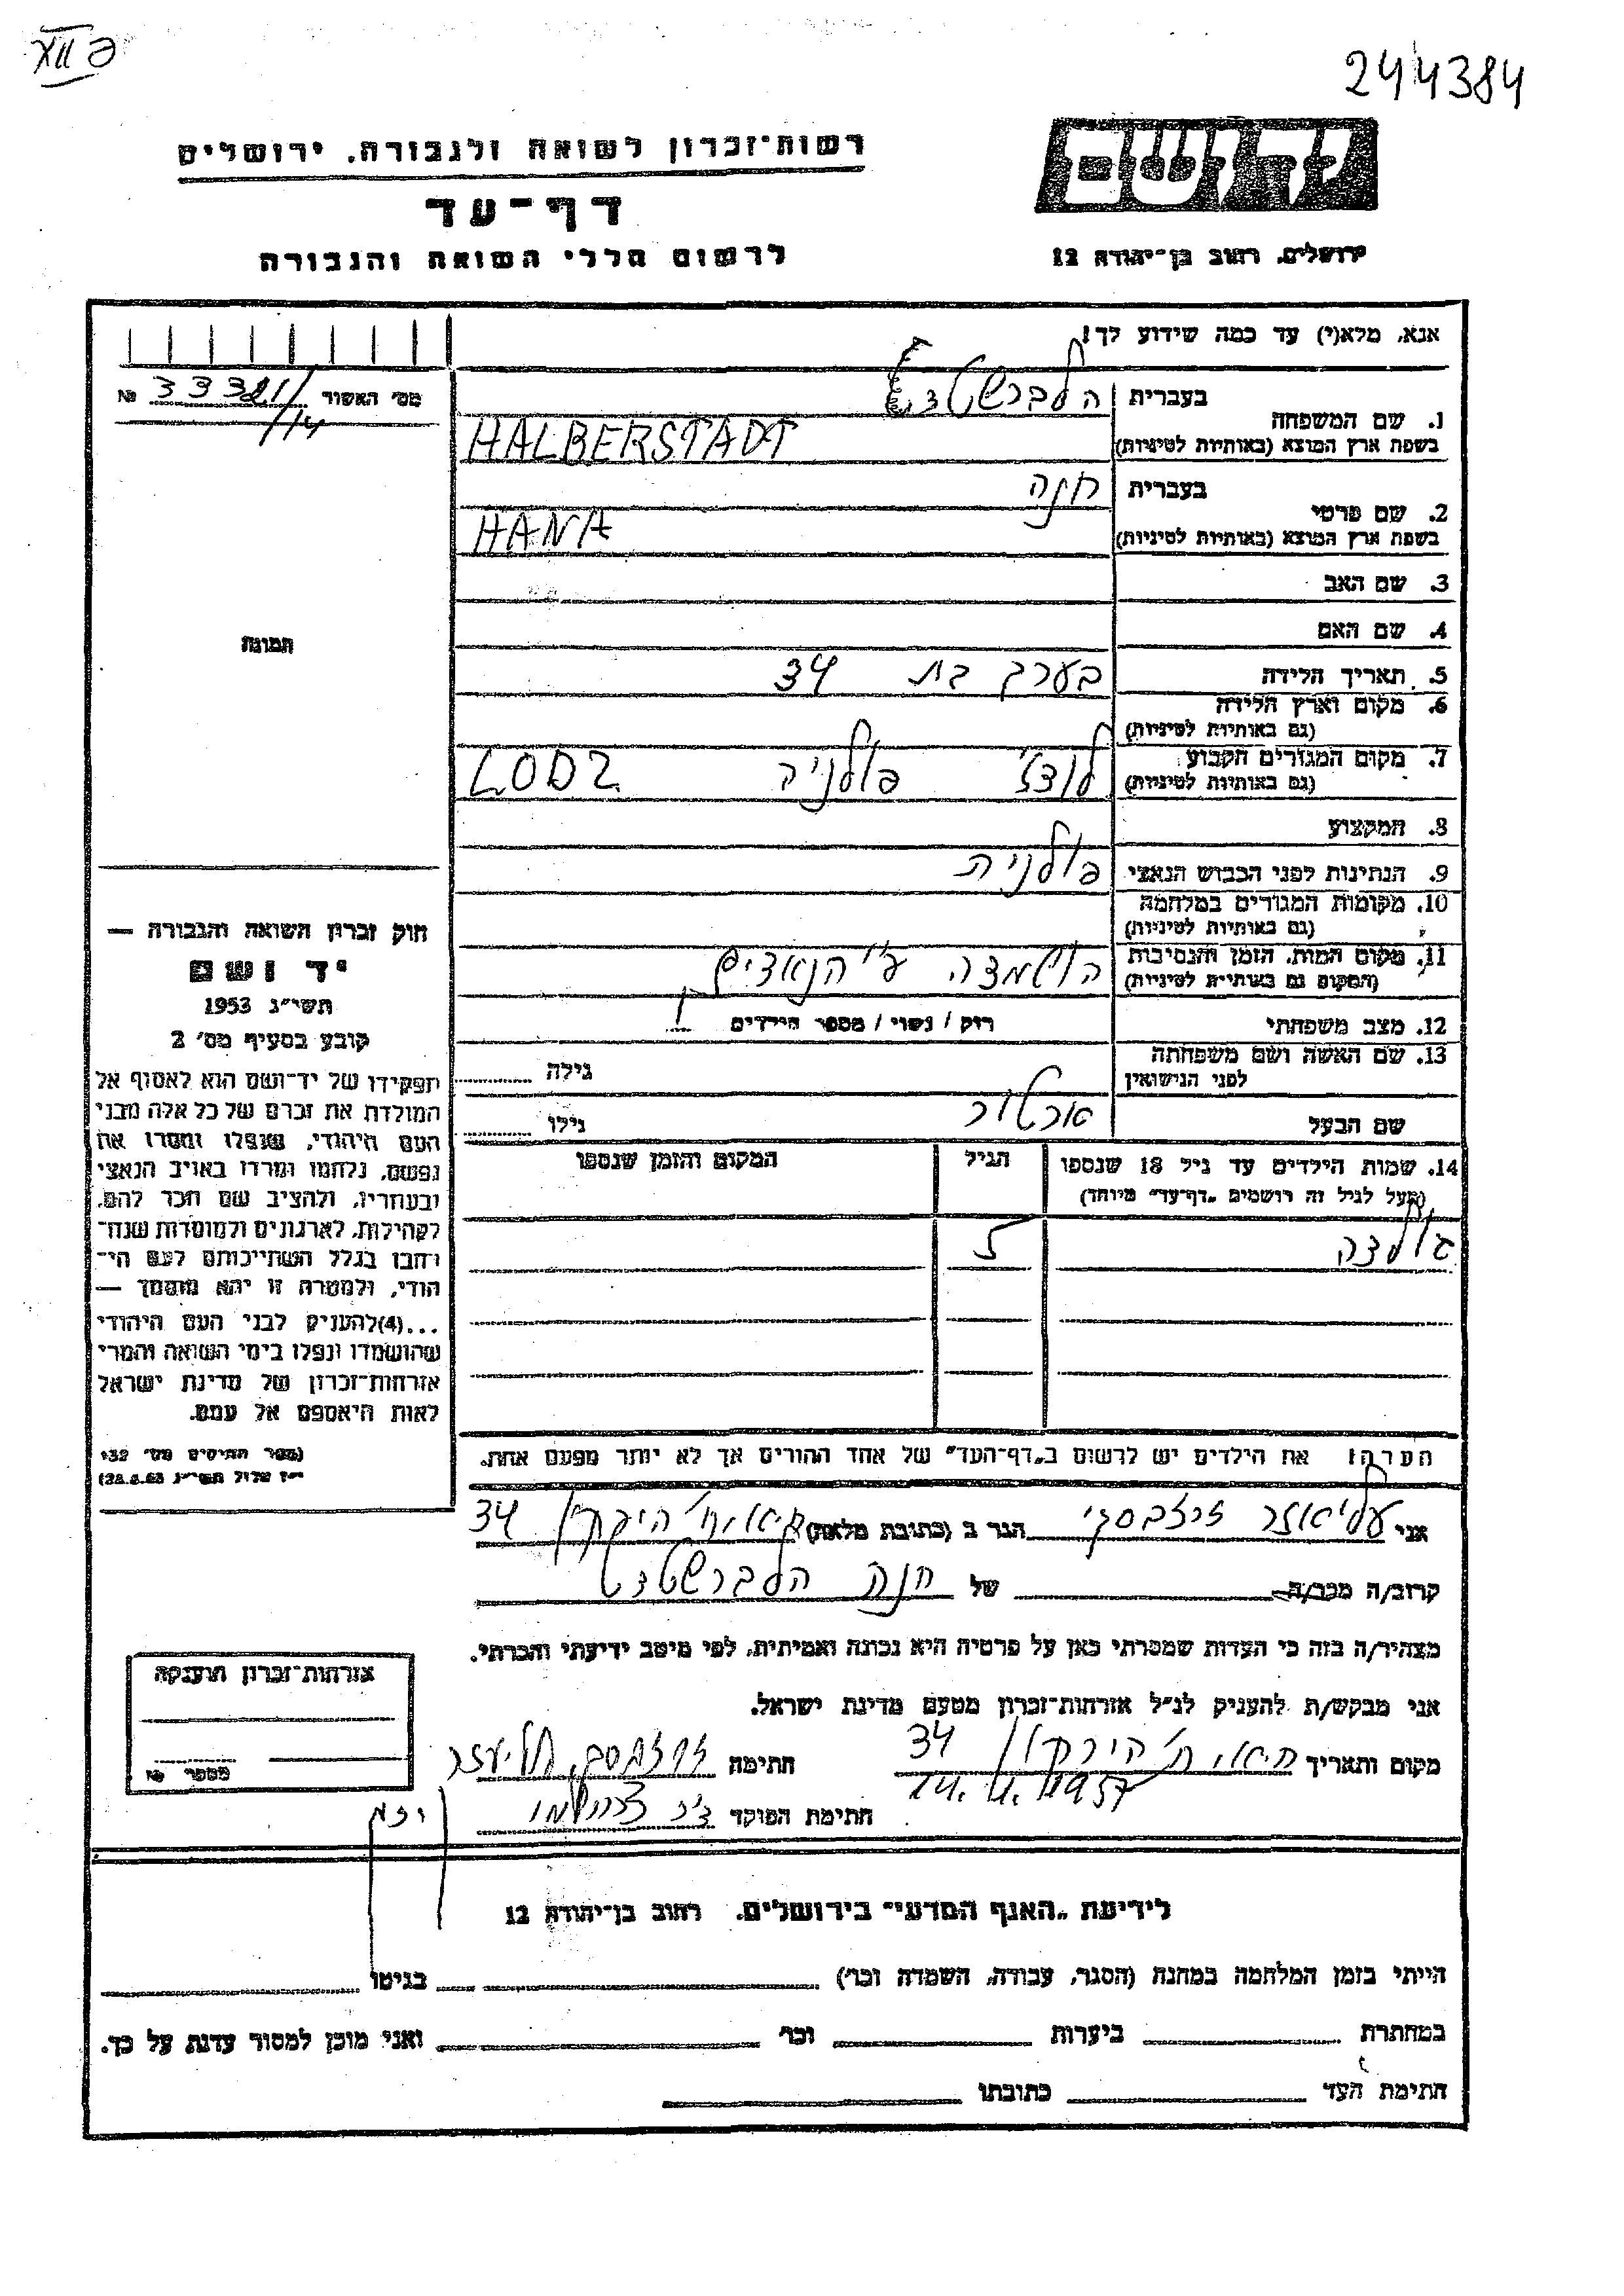 244384
רשות־זכרון לשואה ולגבורה, ירושלים
דף־עד
לרשום חללי השואה והגבורה
יד ושם
ירושלים, רחוב בן־יהודה 12
אנא, מלא(י) עד כמה שידוע לך!
מס׳ האשור № 33321/14
1. שם המשפחה
בעברית הלברשטדט
בשפת ארץ המוצא (באותיות לטיניות) HALBERSTADT
2. שם פרטי
בעברית חנה
בשפת ארץ המוצא (באותיות לטיניות) HANA
3. שם האב
4. שם האם
תמונה
5. תאריך הלידה בערך בת 34
6. מקום וארץ הלידה
(גם באותיות לטיניות)
7. מקום המגורים הקבוע לודז׳ פולניה LODZ
(גם באותיות לטיניות)
8. המקצוע
9. הנתינות לפני הכבוש הנאצי פולנית
10. מקומות המגורים במלחמה
(גם באותיות לטיניות)
11. מקום המות, הזמן והנסיבות הושמדה ע״י הנאצים
(המקום גם באותיות לטיניות)
12. מצב משפחתי רווק / נשוי / מספר הילדים 1
13. שם האשה ושם משפחתה
לפני הנישואין גילה
שם הבעל ארטור גילו
14. שמות הילדים עד גיל 18 שנספו הגיל המקום והזמן שנספו
(מעל לגיל זה רושמים „דף־עד״ מיוחד)
5
הערה: את הילדים יש לרשום ב„דף־העד״ של אחד ההורים אך לא יותר מפעם אחת.
חוק זכרון השואה והגבורה —
יד ושם
תשי״ג 1953
קובע בסעיף מס׳ 2
תפקידו של יד־ושם הוא לאסוף אל
המולדת את זכרם של כל אלה מבני
העם היהודי, שנפלו ומסרו את
נפשם, נלחמו ומרדו באויב הנאצי
ובעוזריו, ולהציב שם וזכר להם,
לקהילות, לארגונים ולמוסדות שנח־
רבו בגלל השתייכותם לעם הי־
הודי, ולמטרה זו יהא מוסמך —
...(4) להעניק לבני העם היהודי
שהושמדו ונפלו בימי השואה והמרי
אזרחות־זכרון של מדינת ישראל
לאות היאספם אל עמם.
(ספר החוקים מס׳ 132
י״ז אלול תשי״ג 28.8.53)
אני הגר ב (כתובת מלאה) הירקון 34
קרוב/ה מכר/ה של חנה הלברשטדט
מצהיר/ה בזה כי העדות שמסרתי כאן על פרטיה היא נכונה ואמיתית, לפי מיטב ידיעתי והכרתי.
אני מבקש/ת להעניק לנ״ל אזרחות־זכרון מטעם מדינת ישראל.
מקום ותאריך הירקון 34 חתימה
14.4.1957
חתימת הפוקד
אזרחות־זכרון הוענקה
מספר №
לידיעת „האגף המדעי״ בירושלים, רחוב בן־יהודה 12
הייתי בזמן המלחמה במחנה (הסגר, עבודה, השמדה וכר׳) בגיטו
במחתרת ביערות וכר׳ ואני מוכן למסור עדות על כך.
חתימת העד כתובתו